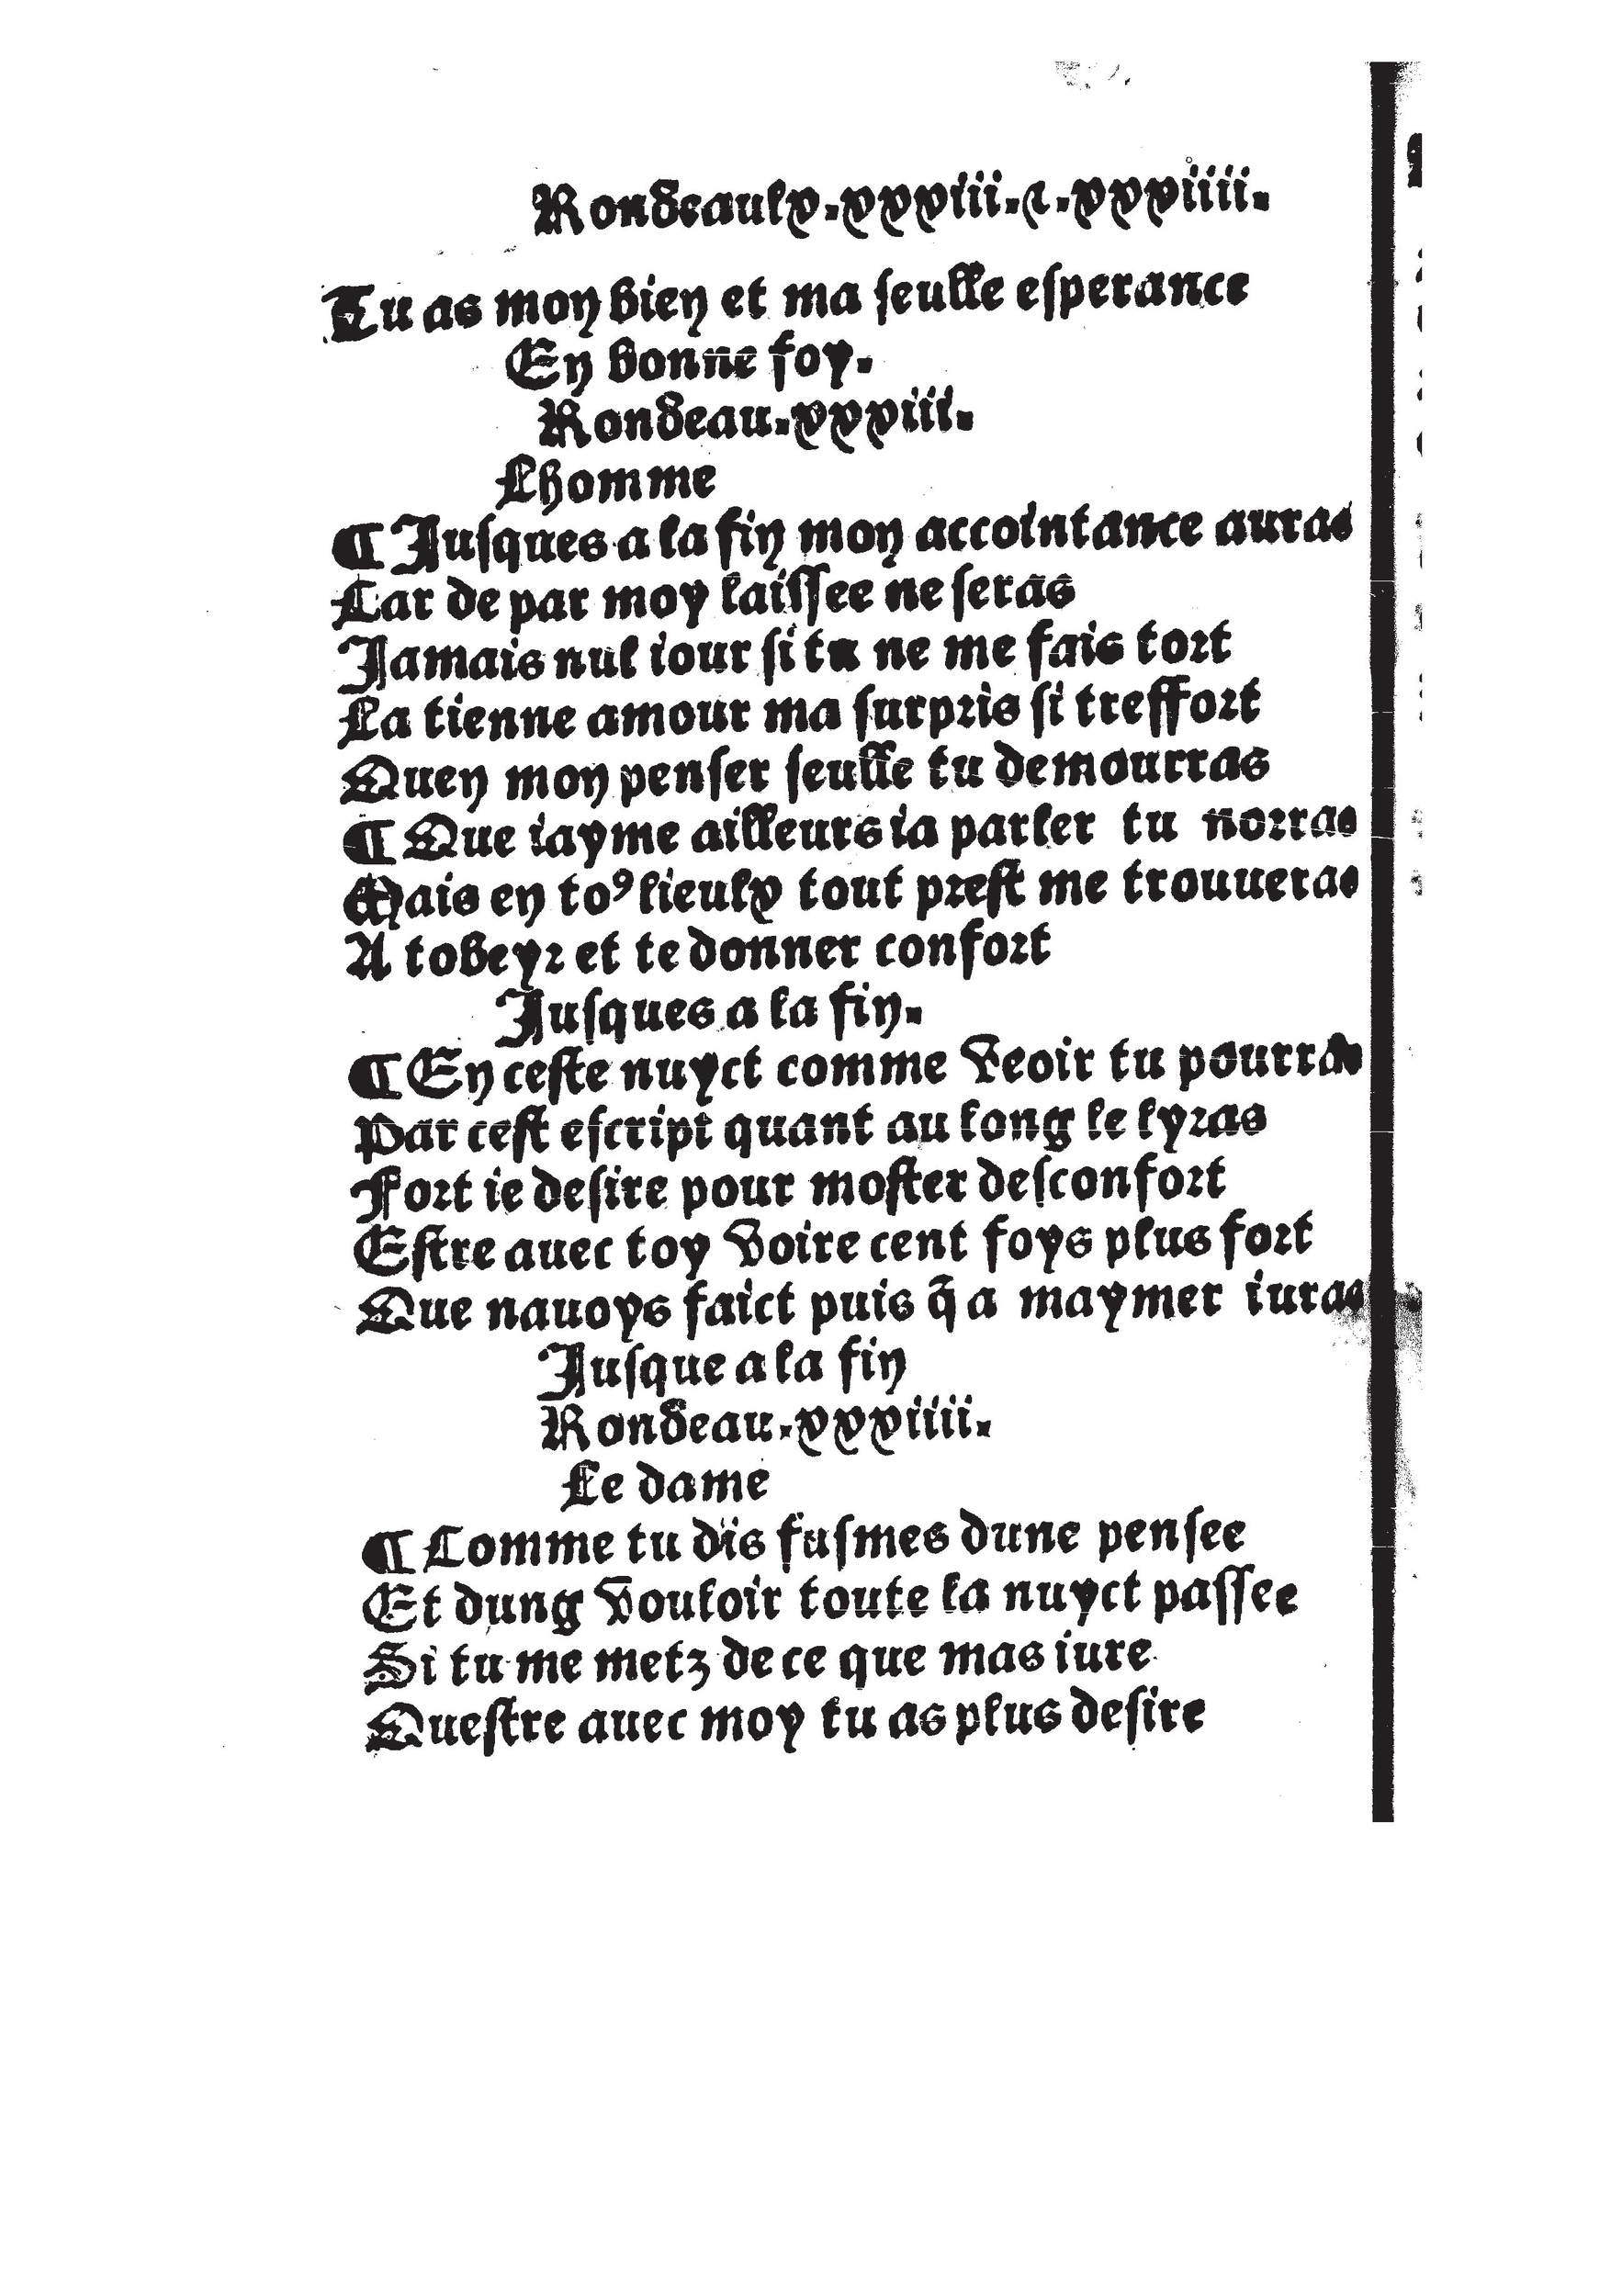 Rondeaulx.xxxiii.⁊.xxxiiii.
Tu as mon bien et ma ſeulle eſperance
En bonne foy.
Rondeau.xxxiii.
Lhomme
¶ Juſques a la fin mon accointance auras
Car de par moy laiſſee ne ſeras
Jamais nul iour ſi tu ne me fais toꝛt
La tienne amour ma ſurpꝛis ſi treffoꝛt
Quen mon penſer ſeulle tu demourras
¶ Que iayme ailleurs ia parler tu noꝛras
Mais en to⁹ lieulx tout pꝛeſt me trouueras
A tobeyꝛ et te donner confoꝛt
Juſques a la fin.
¶ En ceſte nuyct comme veoir tu pourras
Par ceſt eſcript quant au long le lyꝛas
Foꝛt ie deſire pour moſter deſconfoꝛt
Eſtre auec toy voire cent foys plus foꝛt
Que nauoys faict puis q̃ a maymer iuras
Juſque a la fin
Rondeau.xxxiiii.
Le dame
¶ Comme tu dis fuſmes dune penſee
Et dung vouloir toute la nuyct paſſee
Si tu me metz de ce que mas iure
Queſtre auec moy tu as plus deſire